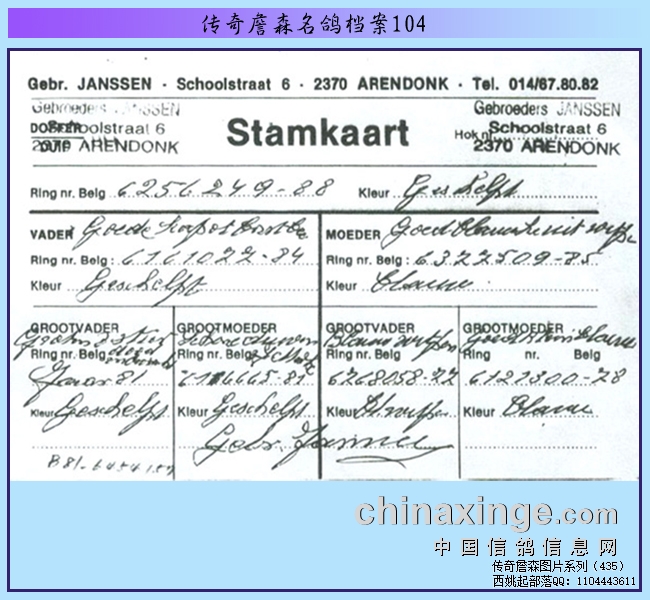 传奇詹森名鸽档案104
Gebr. JANSSEN · Schoolstraat 6 · 2370 ARENDONK · Tel. 014/67.80.82
Gebroeders JANSSEN
Schoolstraat 6
2370 ARENDONK
Stamkaart
Gebroeders JANSSEN
Hok nr. Schoolstraat 6
2370 ARENDONK
Ring nr. Belg 6256249-88 Kleur Geschelpt
VADER Goede
Ring nr. Belg : 6161022-84
Kleur Geschelpt
MOEDER Goed
Ring nr. Belg : 6322509-85
Kleur Blauw
GROOTVADER
Ring nr. Belg
Jaar 81
Kleur Geschelpt
B81-6454152
GROOTMOEDER
Ring nr. Belg
Kleur Geschelpt
GROOTVADER
Blauw
Ring nr. Belg
6768058-77
Kleur
GROOTMOEDER
Ring nr. Belg
6121300-78
Kleur Blauw
Gebr. Janssen
chinaxinge.com
中国信鸽信息网
传奇詹森图片系列（435）
西姚起部落QQ：1104443611